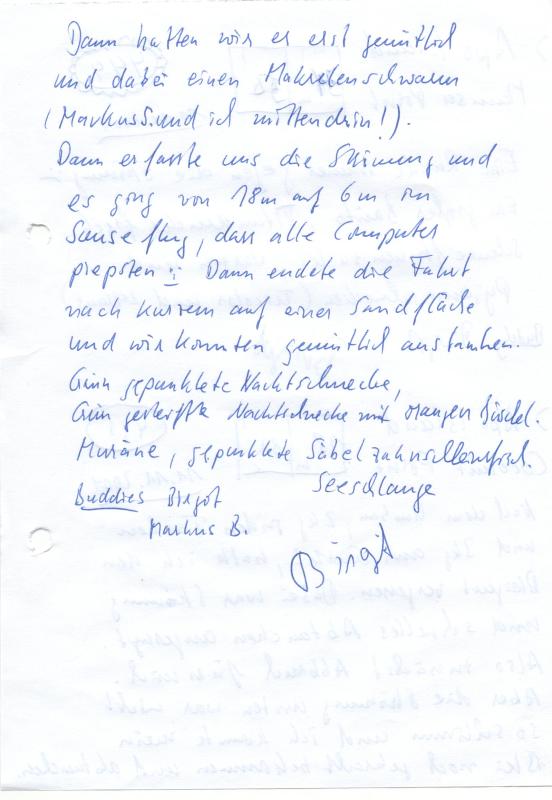 Dann hatten wir es erst gemütlich
und dabei einen Makrelenschwarm
(Markus S. und ich mittendrin!).
Dann erfasste uns die Strömung und
es ging von 18m auf 6m im
Sauseflug, dass alle Computer
piepsten :) Dann endete die Fahrt
nach kurzem auf einer Sandfläche
und wir konnten gemütlich austauchen.
Grün gepunktete Nachtschnecke,
Grün gestreifte Nachtschnecke mit orangen Büschel.
Muräne, gepunktete Säbelzahnschleimfisch.
Seeschlange
Buddies Birgit
Markus B.
Birgit